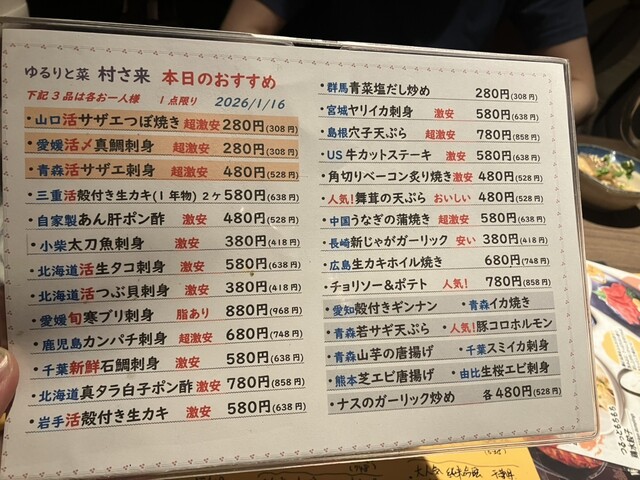 ゆるりと菜 村さ来 本日のおすすめ
下記3品は各お一人様 1点限り 2026/1/16
・山口活サザエつぼ焼き 超激安 280円(308円)
・愛媛活〆真鯛刺身 超激安 280円(308円)
・青森活サザエ刺身 超激安 480円(528円)
・三重活殻付き生カキ(1年物)2ヶ 580円(638円)
・自家製あん肝ポン酢 激安 480円(528円)
・小柴太刀魚刺身 激安 380円(418円)
・北海道活生タコ刺身 激安 580円(638円)
・北海道活つぶ貝刺身 激安 380円(418円)
・愛媛旬寒ブリ刺身 脂あり 880円(968円)
・鹿児島カンパチ刺身 超激安 680円(748円)
・千葉新鮮石鯛刺身 激安 580円(638円)
・北海道真タラ白子ポン酢 激安 780円(858円)
・岩手活殻付き生カキ 激安 580円(638円)
・群馬青菜塩だし炒め 280円(308円)
・宮城ヤリイカ刺身 激安 580円(638円)
・島根穴子天ぷら 超激安 780円(858円)
・US牛カットステーキ 激安 580円(638円)
・角切りベーコン炙り焼き 激安 480円(528円)
・人気!舞茸の天ぷら おいしい 480円(528円)
・中国うなぎの蒲焼き 超激安 580円(638円)
・長崎新じゃがガーリック 安い 380円(418円)
・広島生カキホイル焼き 680円(748円)
・チョリソー&ポテト 人気! 780円(858円)
・愛知殻付きギンナン ・青森イカ焼き
・青森若サギ天ぷら ・人気!豚コロホルモン
・青森山芋の唐揚げ ・千葉スミイカ刺身
・熊本芝エビ唐揚げ ・由比生桜エビ刺身
・ナスのガーリック炒め 各480円(528円)